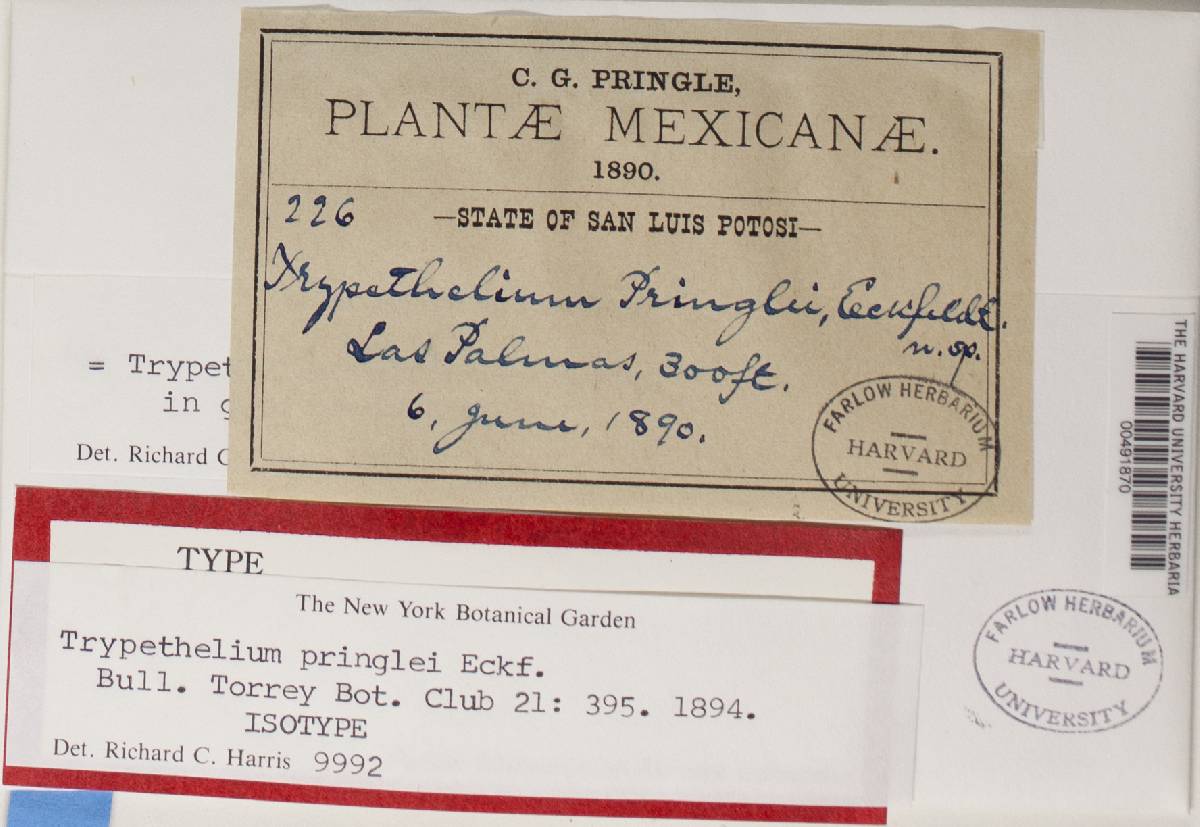 C. G. PRINGLE,
PLANTÆ MEXICANÆ.
1890.
226 —STATE OF SAN LUIS POTOSI—
Trypethelium Pringlei, Eckfeldt.
n. sp.
Las Palmas, 300ft.
6, June, 1890.
FARLOW HERBARIUM
HARVARD
UNIVERSITY
= Trypet
in
Det. Richard C
THE HARVARD UNIVERSITY HERBARIA
00491870
TYPE
The New York Botanical Garden
Trypethelium pringlei Eckf.
Bull. Torrey Bot. Club 21: 395. 1894.
ISOTYPE
Det. Richard C. Harris 9992
FARLOW HERBARIUM
HARVARD
UNIVERSITY